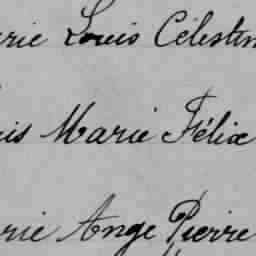 rie Louis Célestin
is Marie Félix
rie Ange Pierre